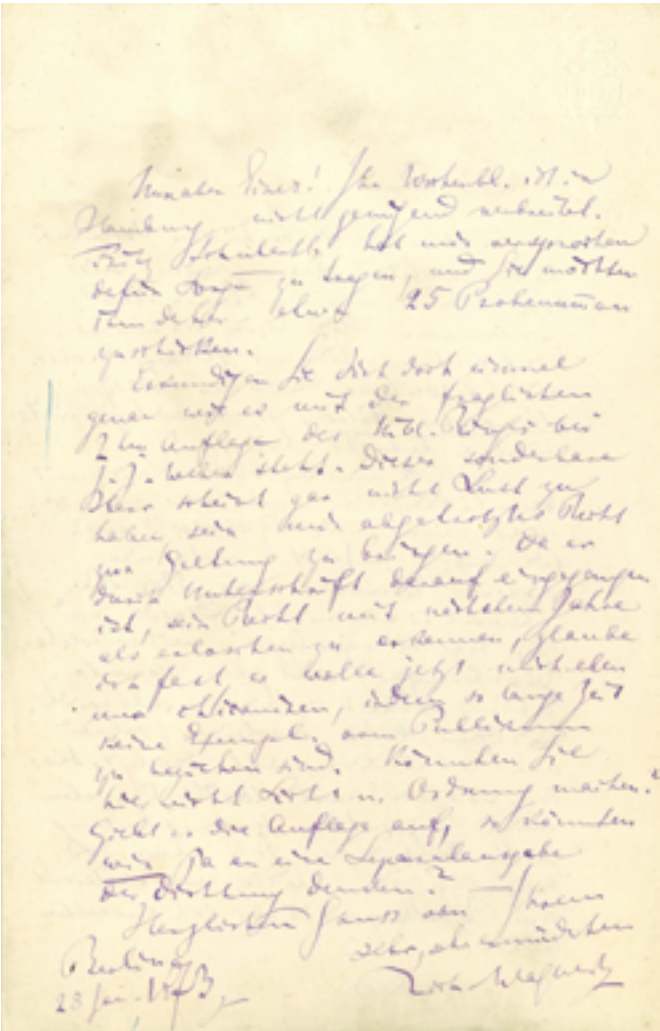 Ihr Wochenbl. ist in
Hamburg nicht genügend verbreitet.
hat mir versprochen
dafür Sorge zu tragen, und Sie möchten
ihm daher etwa 25 Probenummern
zuschicken.
Erkundigen Sie sich doch einmal
genau wie es mit der fraglichen
2ten Auflage der Nibl. Ringes bei
J. J. Weber steht. Dieser sonderbare
Herr scheint gar nicht Lust zu
haben sein mir abgetrotztes Recht
zur Geltung zu bringen. Da er
durch Unterschrift darauf eingegangen
ist, sein Recht mit nächstem Jahre
als erloschen zu erkennen, glaube
ich fast er wolle jetzt mich eben
nur chicaniren, indem so lange Zeit
keine Exemplare vom Publikum
zu beziehen sind. Könnten Sie
hier nicht Licht u. Ordnung machen?
Giebt er die Auflage auf, so könnten
wir ja an eine Separatausgabe
der Dichtung denken?
Herzlichen Gruss von Ihrem
Berlin